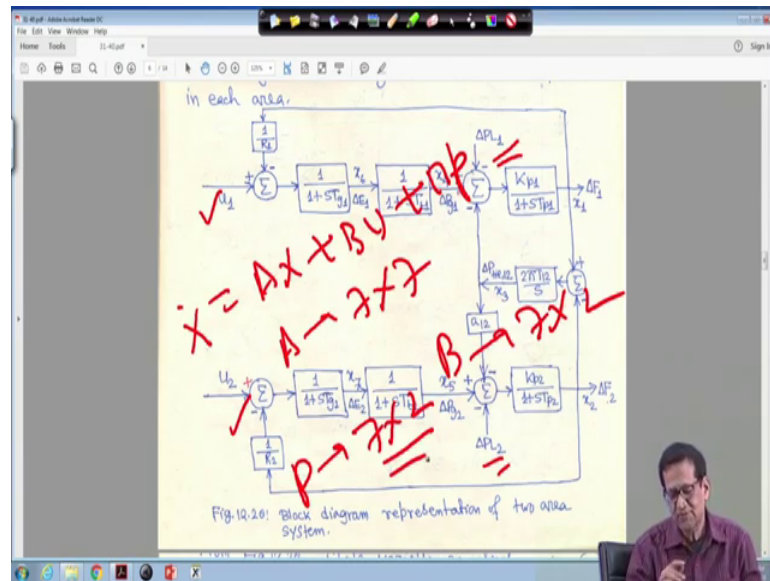 31-40.pdf - Adobe Acrobat Reader DC
File Edit View Window Help
Home Tools 31-40.pdf × Sign In
6 / 14 125%
in each area.
1/R1
ΔPL1
u1 + - Σ 1/(1+STg1) x6 ΔE1 ΔPg1 - Σ Kp1/(1+STp1) ΔF1 x1
Ẋ = AX + BU + Γp
A → 7X7
ΔPtie,12 x3 2πT12/S + Σ -
a12
B → 7X2
u2 + - Σ 1/(1+STg2) x7 ΔE2 x5 ΔPg2 + - Σ Kp2/(1+STp2) ΔF2 x2
P → 7X2
1/R2
ΔPL2
Fig.12.20: Block diagram representation of two area
system.